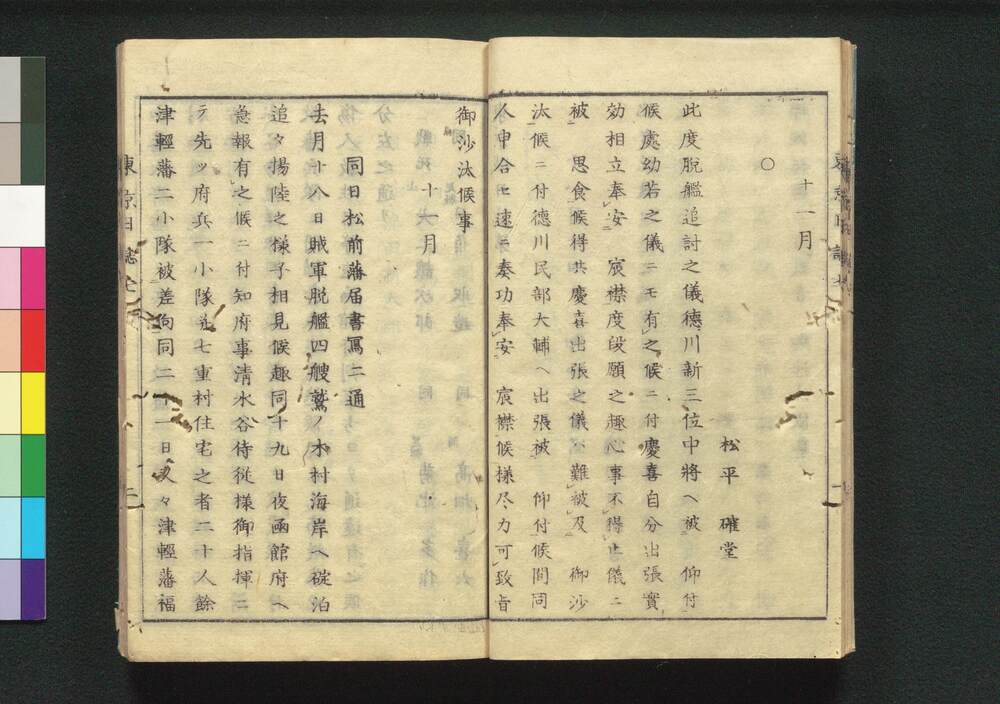 十一月
○
松平　確堂
此度脱艦追討之儀德川新三位中將ヘ被　仰付
候處幼若之儀ニモ有之候ニ付慶喜自分出張實
効相立奉安　宸襟度段願之趣心事不得止儀ニ
被　思食候得共慶喜出張之儀ハ難被及　御沙
汰候ニ付德川民部大輔ヘ出張被　仰付候間同
人申合セ速ニ奏功奉安　宸襟候様尽力可致旨
御沙汰候事
十一月
同日松前藩届書冩二通
去月十八日賊軍脱艦四艘鷲ノ木村海岸ヘ碇泊
追々揚陸之様子相見候趣同十九日夜函館府ヘ
急報有之候ニ付知府事清水谷侍従様御指揮ニ
テ先ッ府兵一小隊並七重村住宅之者二十人餘
津輕藩二小隊被差向同二十一日又々津輕藩福
東京日誌